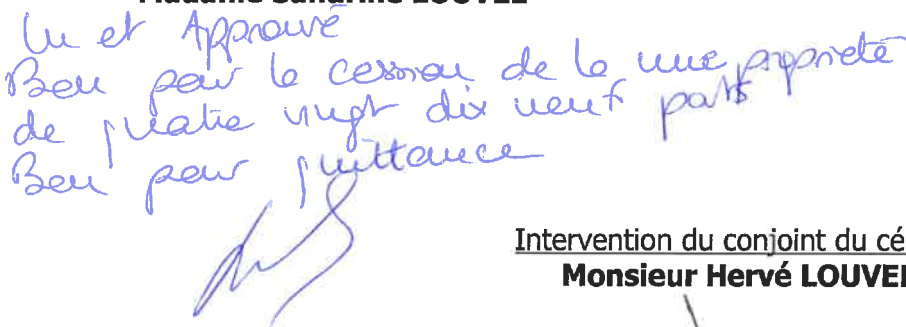 Madame Sandrine LOUVEL
Lu et Approuvé
Bon pour la cession de la nue propriété
de quatre vingt dix neuf parts
Bon pour quittance
Intervention du conjoint du cé
Monsieur Hervé LOUVEL